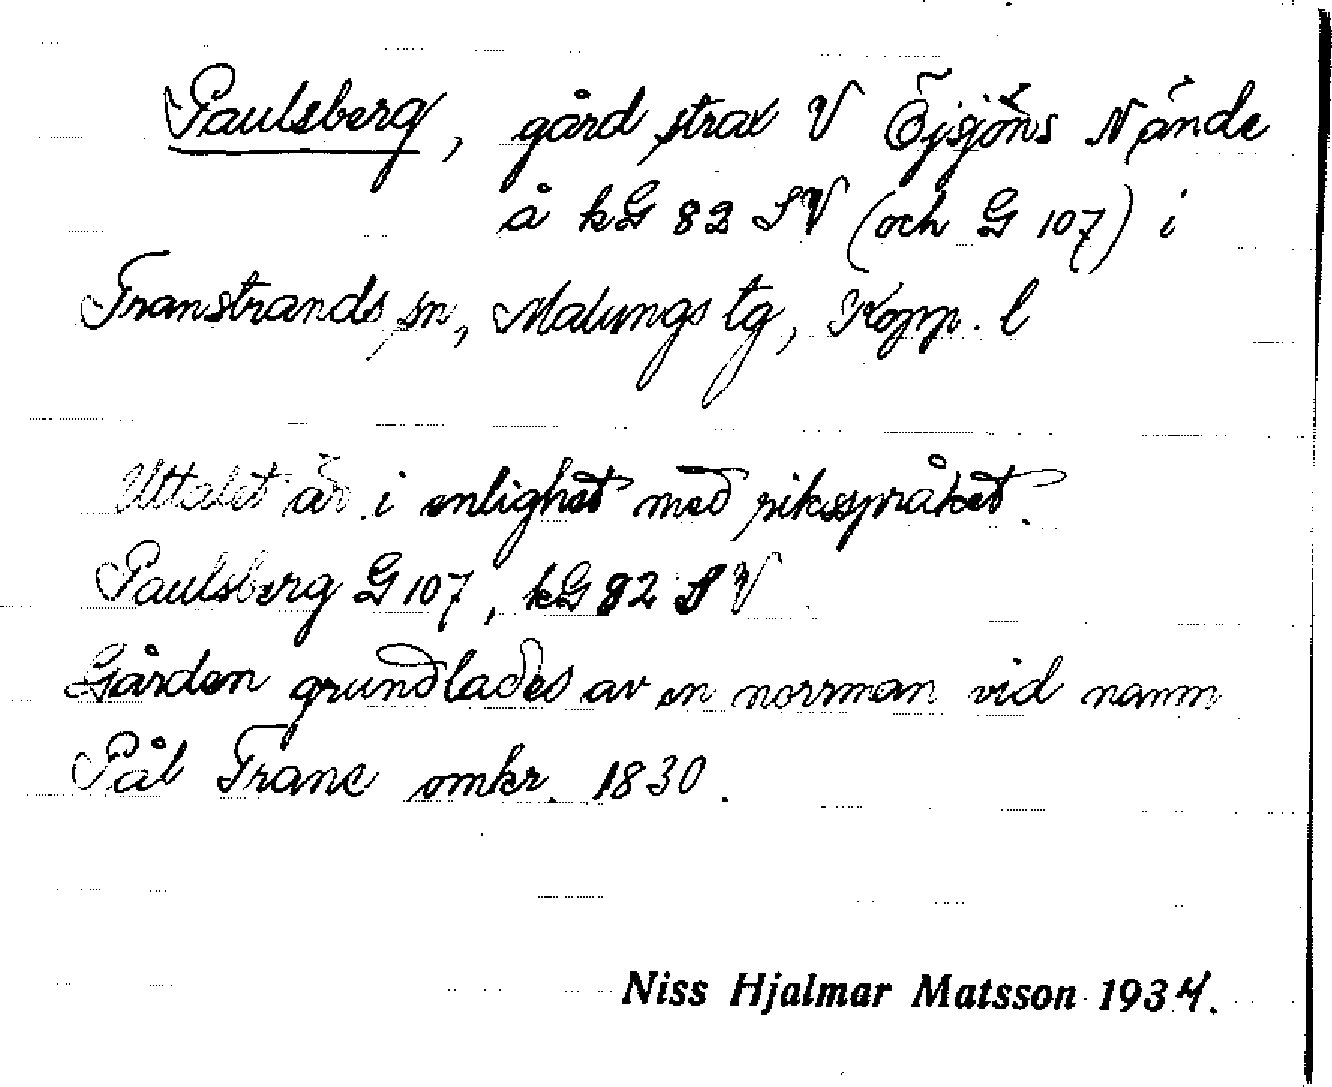 Paulsberg, gård strax V Öjsjöns N ände
å kG 82 SV (och G 107) i
Transtrands sn, Malungs tg, Kopp. l
Uttalet är i enlighet med riksspråket.
Paulsberg G 107, kG 82 SV
Gården grundlades av en norrman vid namn
Pål Trane omkr. 1830.
Niss Hjalmar Matsson 1934.